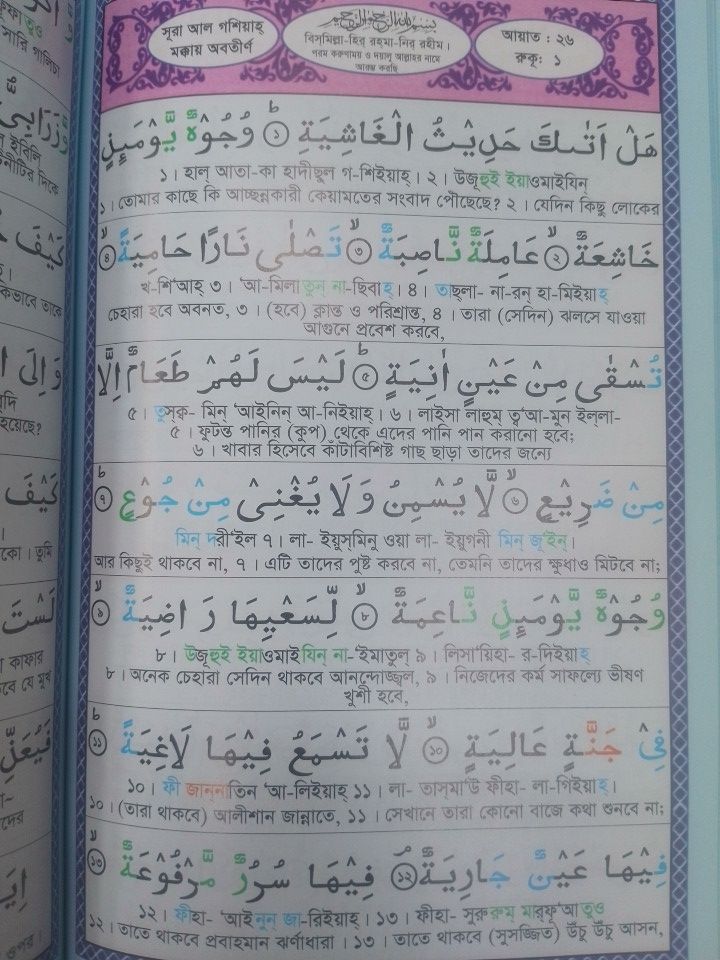 সূরা আল গশিয়াহ্
মক্কায় অবতীর্ণ
بِسْمِ اللّٰهِ الرَّحْمٰنِ الرَّحِيْمِ
বিসমিল্লা-হির্ রহমা-নির্ রহীম।
পরম করুণাময় ও দয়ালু আল্লাহর নামে
আরম্ভ করছি
আয়াত : ২৬
রুকূ: ১
هَلْ اَتٰىكَ حَدِيْثُ الْغَاشِيَةِ ۞١ وُجُوْهٌ يَّوْمَىِٕذٍ
১। হাল্ আতা-কা হাদীছুল্ গ-শিইয়াহ্। ২। উজূহুই ইয়াওমাইযিন্
১। তোমার কাছে কি আচ্ছন্নকারী কেয়ামতের সংবাদ পৌঁছেছে? ২। যেদিন কিছু লোকের
خَاشِعَةٌ ۞٢ عَامِلَةٌ نَّاصِبَةٌ ۞٣ تَصْلٰى نَارًا حَامِيَةً ۞٤
খ-শি'আহ্ ৩। 'আ-মিলাতুন না-ছিবাহ্। ৪। তাছ্লা- না-রন্ হা-মিইয়াহ্
চেহারা হবে অবনত, ৩। (হবে) ক্লান্ত ও পরিশ্রান্ত, ৪। তারা (সেদিন) ঝলসে যাওয়া
আগুনে প্রবেশ করবে,
تُسْقٰى مِنْ عَيْنٍ اٰنِيَةٍ ۞٥ لَيْسَ لَهُمْ طَعَامٌ اِلَّا
৫। তুস্ক্ব- মিন্ 'আইনিন্ আ-নিইয়াহ্। ৬। লাইসা লাহুম্ ত্ব'আ-মুন ইল্লা-
৫। ফুটন্ত পানির (কূপ) থেকে এদের পানি পান করানো হবে;
৬। খাবার হিসেবে কাঁটাবিশিষ্ট গাছ ছাড়া তাদের জন্যে
مِنْ ضَرِيْعٍ ۞٦ لَّا يُسْمِنُ وَلَا يُغْنِىْ مِنْ جُوْعٍ ۞٧
মিন্ দরী'ইল ৭। লা- ইয়ুসমিনু ওয়া লা- ইয়ুগনী মিন্ জূ'ইন্।
আর কিছুই থাকবে না, ৭। এটি তাদের পুষ্ট করবে না, তেমনি তাদের ক্ষুধাও মিটবে না;
وُجُوْهٌ يَّوْمَىِٕذٍ نَّاعِمَةٌ ۞٨ لِّسَعْيِهَا رَاضِيَةٌ ۞٩
৮। উজূহুই ইয়াওমাইযিন্ না-'ইমাতুল্ ৯। লিসা'য়িহা- র-দিইয়াহ্
৮। অনেক চেহারা সেদিন থাকবে আনন্দোজ্জ্বল, ৯। নিজেদের কর্ম সাফল্যে ভীষণ
খুশী হবে,
فِىْ جَنَّةٍ عَالِيَةٍ ۞١٠ لَّا تَسْمَعُ فِيْهَا لَاغِيَةً ۞١١
১০। ফী জান্নাতিন 'আ-লিইয়াহ্ ১১। লা- তাসমা'উ ফীহা- লা-গিইয়াহ্।
১০। (তারা থাকবে) আলীশান জান্নাতে, ১১। সেখানে তারা কোনো বাজে কথা শুনবে না;
فِيْهَا عَيْنٌ جَارِيَةٌ ۞١٢ فِيْهَا سُرُرٌ مَّرْفُوْعَةٌ ۞١٣
১২। ফীহা- 'আইনুন্ জা-রিইয়াহ্। ১৩। ফীহা- সুরুরুম্ মারফূ'আতুও
১২। তাতে থাকবে প্রবাহমান ঝর্ণাধারা। ১৩। তাতে থাকবে (সুসজ্জিত) উঁচু উঁচু আসন,